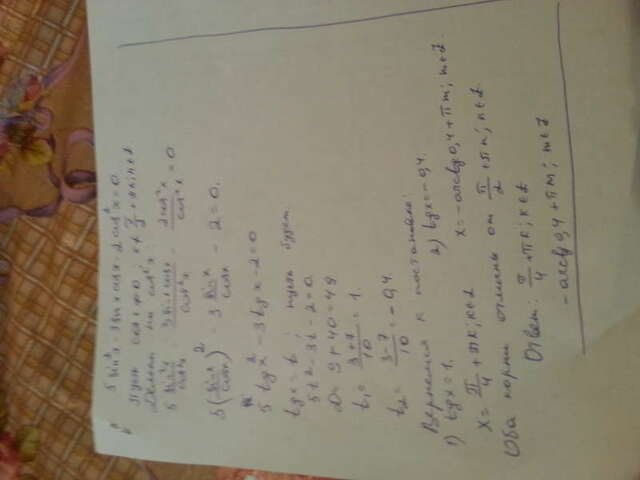 5 sin²x - 3 sin x cos x - 2 cos²x = 0
Пусть cos x ≠ 0; x ≠ π/2 + πn; n∈Z.
Делим на cos²x
5 sin²x/cos²x - 3 sin x cos x/cos²x - 2cos²x/cos²x = 0
5(sin x/cos x)² - 3 sin x/cos x - 2 = 0.
5 tg²x - 3 tg x - 2 = 0
tg x = t; пусть будет
5t² - 3t - 2 = 0
D = 9 + 40 = 49
t₁ = 3+7/10 = 1.
t₂ = 3-7/10 = -0,4.
Вернемся к постановке:
1) tg x = 1. 2) tg x = -0,4.
x = π/4 + πk; k∈Z x = -arctg 0,4 + πm; m∈Z.
Оба корни отличны от π/2 + πn; n∈Z.
Ответ: π/4 + πk; k∈Z
-arctg 0,4 + πm; m∈Z